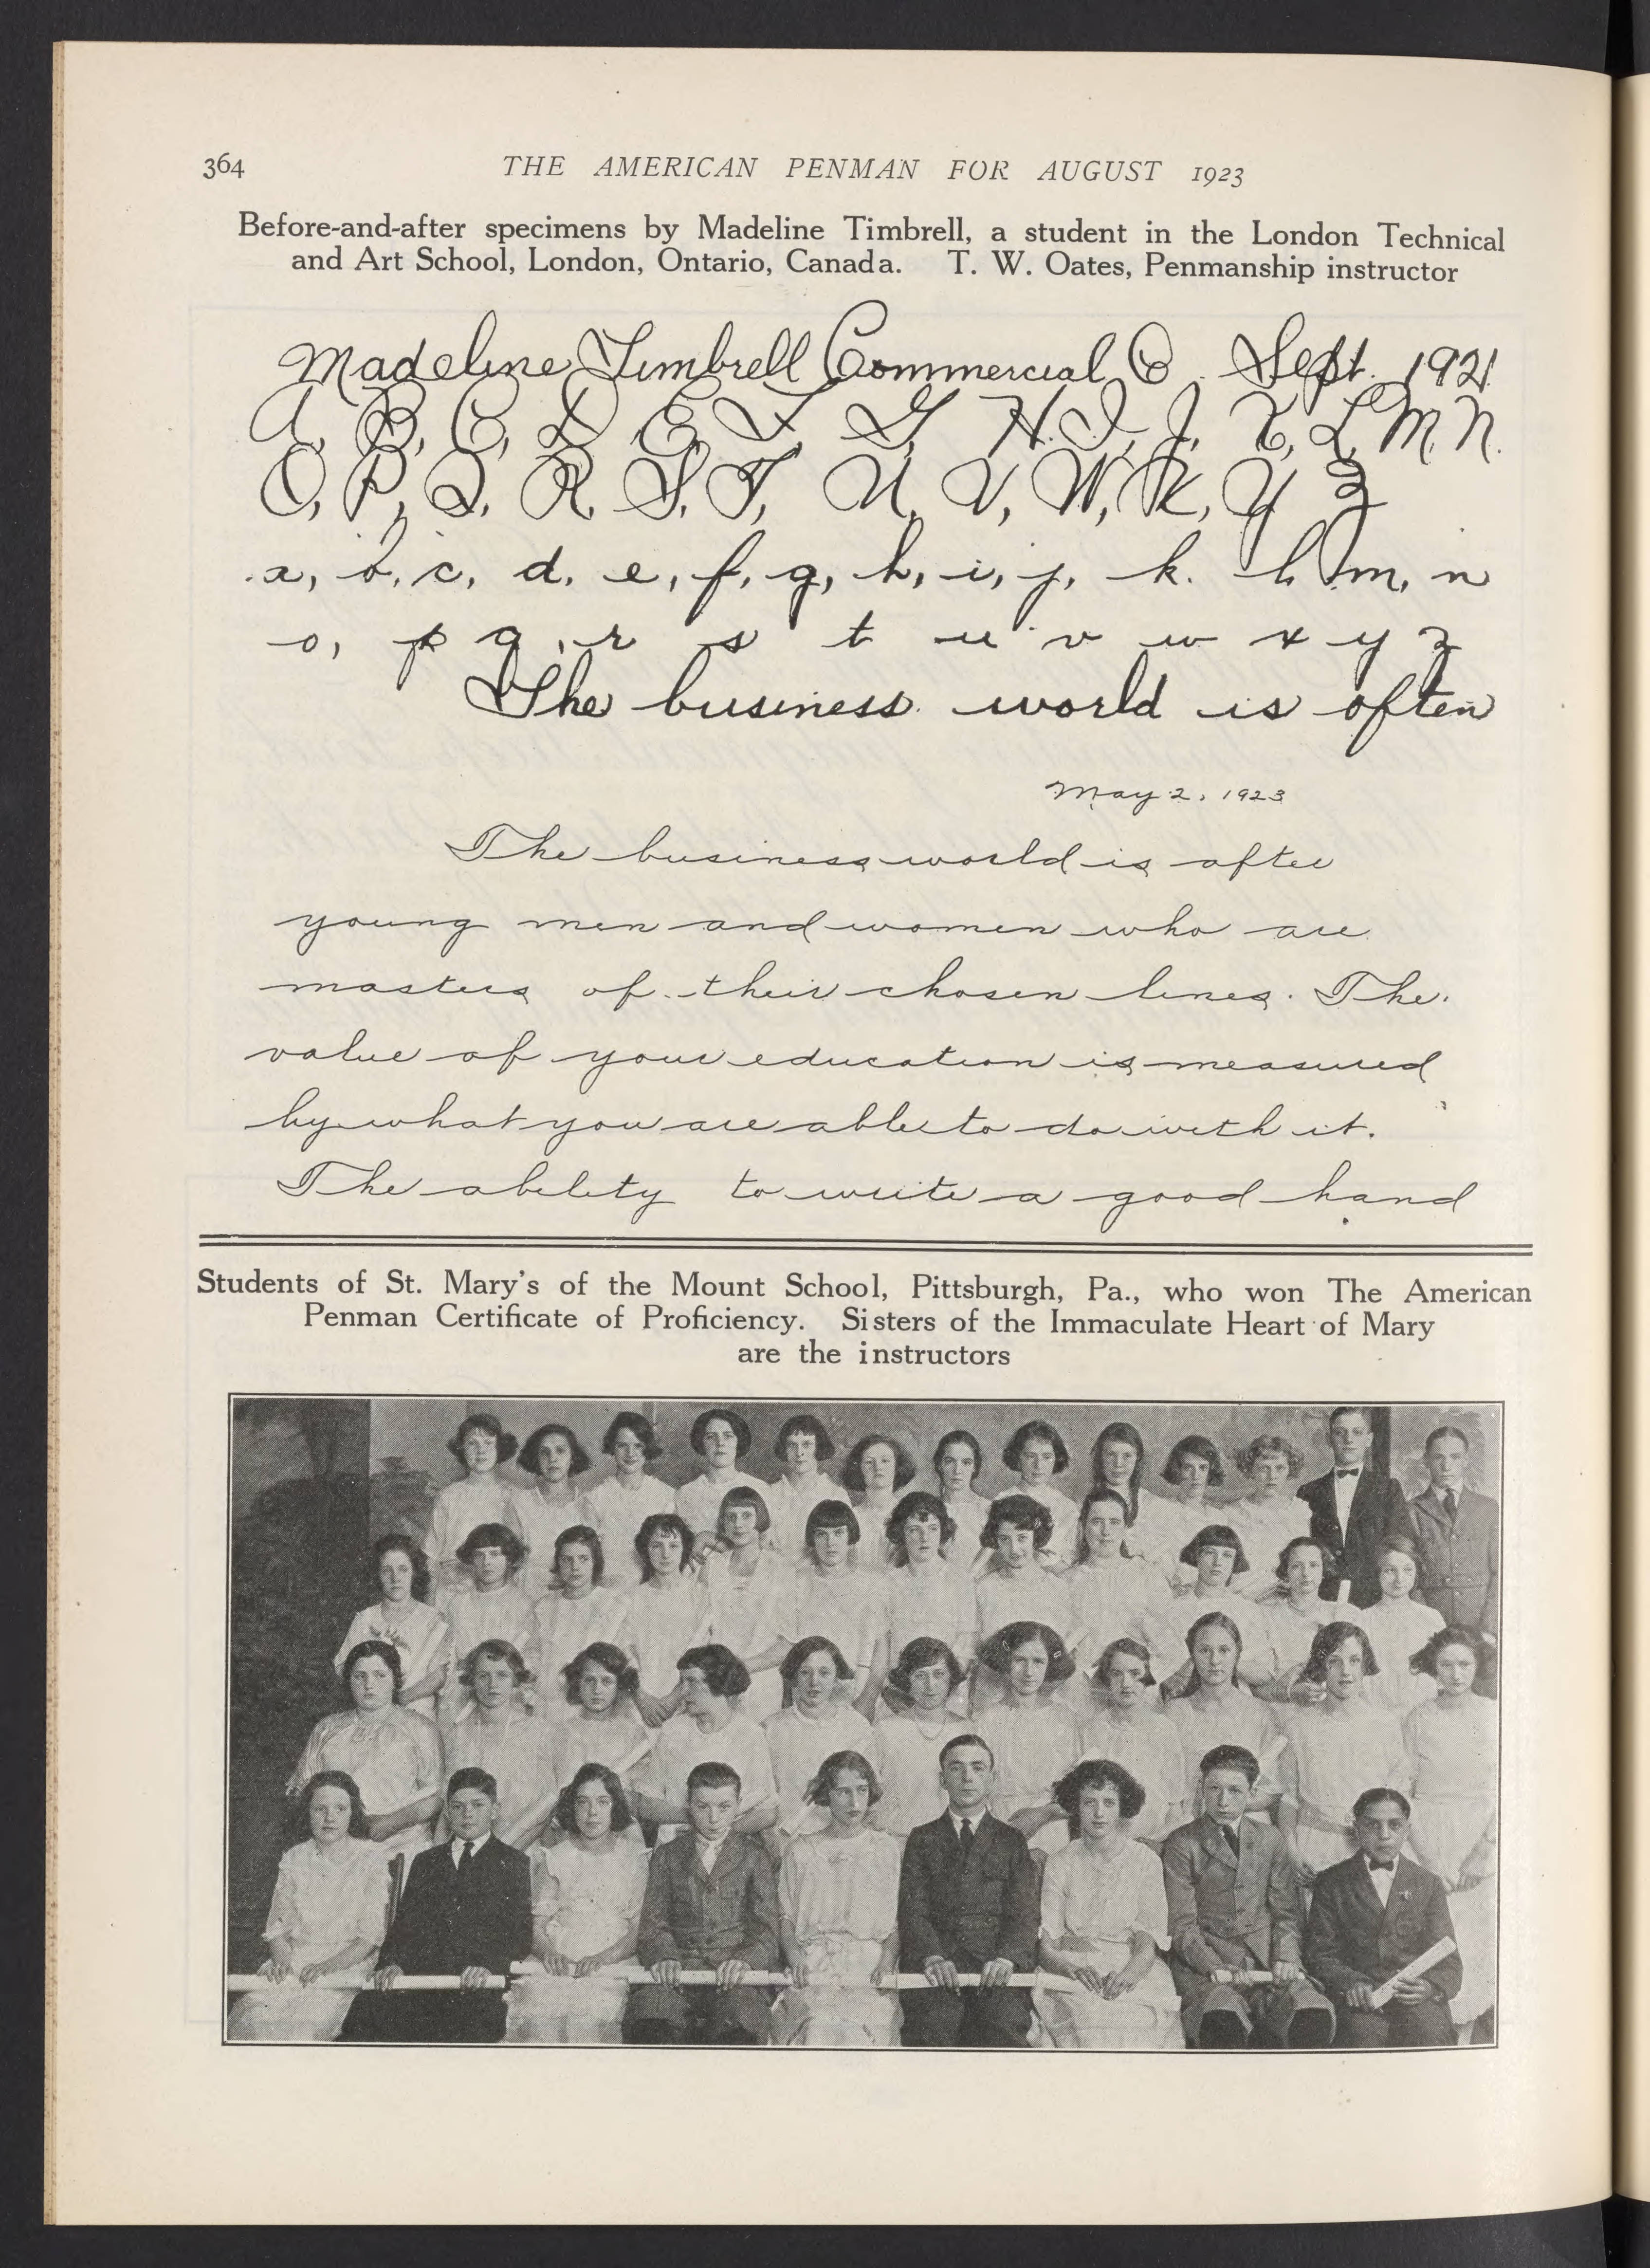 364 THE AMERICAN PENMAN FOR AUGUST 1923
Before-and-after specimens by Madeline Timbrell, a student in the London Technical
and Art School, London, Ontario, Canada. T. W. Oates, Penmanship instructor
Madeline Timbrell Commercial C Sept. 1921
A, B, C, D E, F, G, H. I, J, K, L, M, N.
O, P, Q, R, S, T, U, V, W, X, Y Z
a, b, c, d, e, f, g, h, i, j, k. l, m, n
o, p q, r s t u v w x y z
The business world is often
May 2, 1923
The business world is after
young men and women who are
masters of their chosen lines. The
value of your education is measured
by what you are able to do with it.
The ability to write a good hand
Students of St. Mary's of the Mount School, Pittsburgh, Pa., who won The American
Penman Certificate of Proficiency. Sisters of the Immaculate Heart of Mary
are the instructors